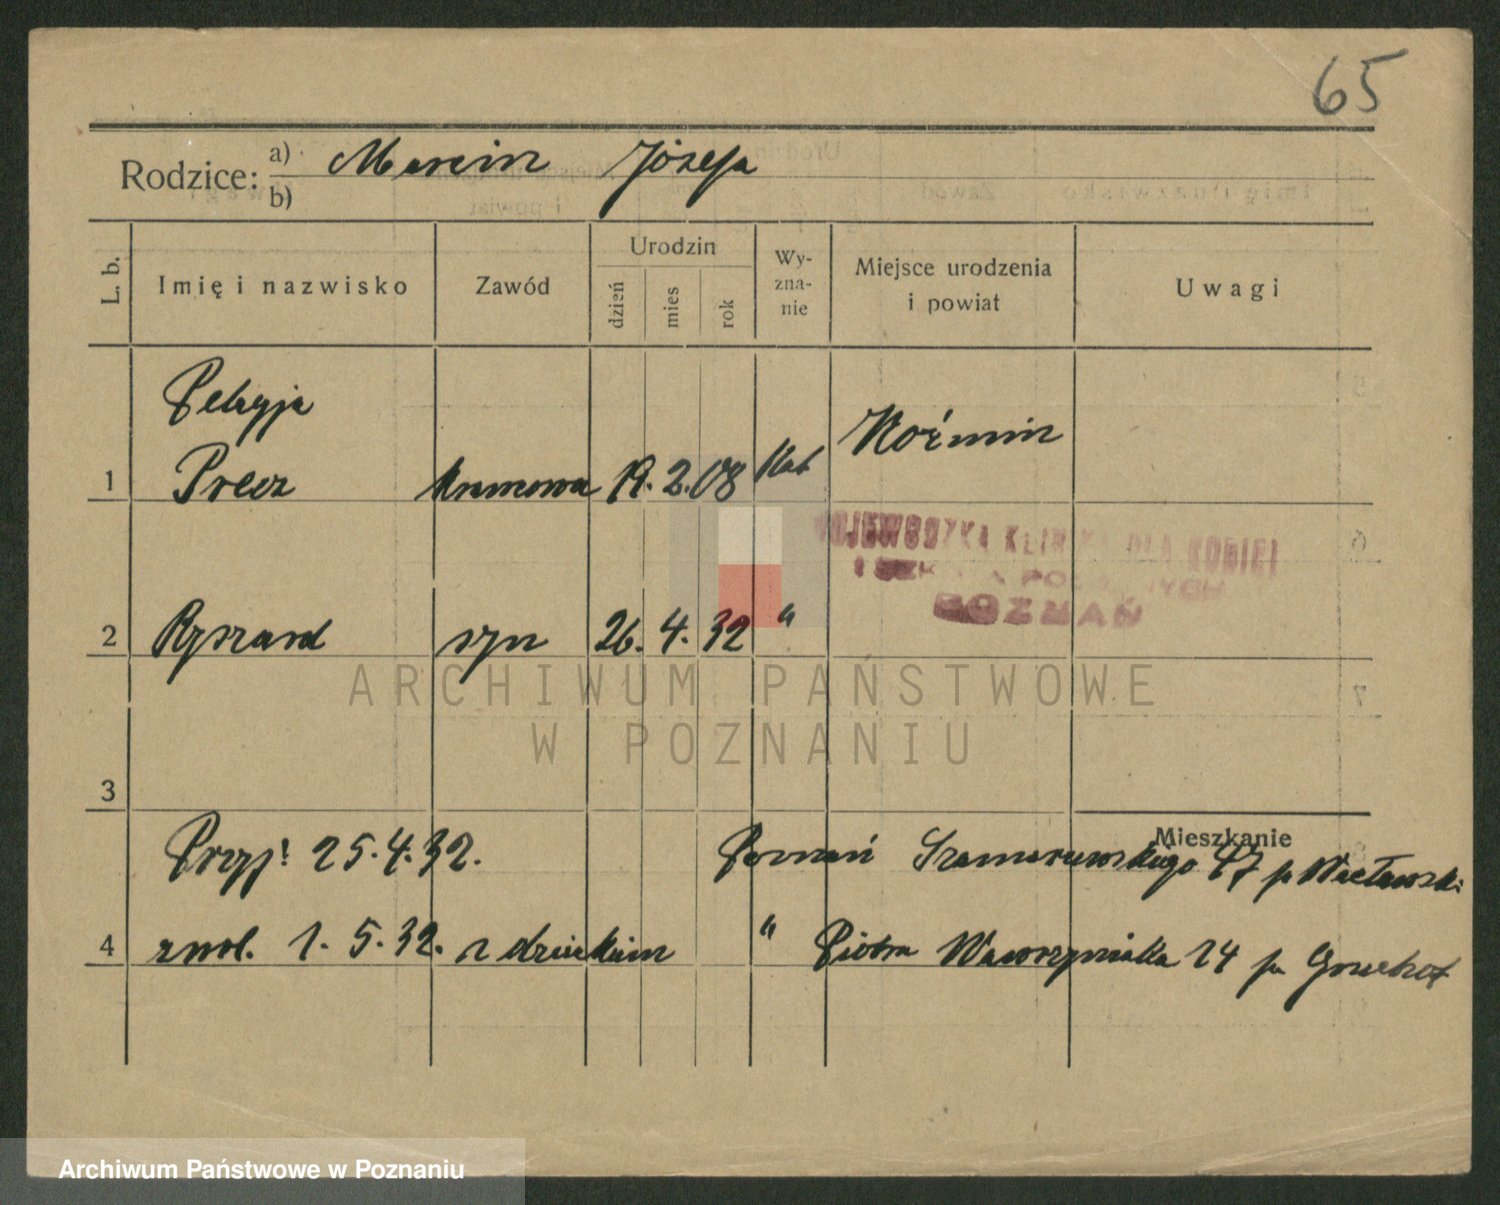 65
Rodzice: a) Marcin Józefa
b)
L. b. Imię i nazwisko Zawód Urodzin dzień mies rok Wy-zna-nie Miejsce urodzenia i powiat Uwagi
Pelagja
1 Precz krawcowa 19. 2. 08 Kat Koźmin
WOJEWÓDZKA KLINIKA DLA KOBIET
I SZKOŁA POŁOŻNYCH
POZNAŃ
2 Ryszard syn 26. 4. 32 "
ARCHIWUM PAŃSTWOWE
W POZNANIU
3
Mieszkanie
Przyj: 25.4.32. Poznań Szamarzewskiego 47 p Wacławski
4 zwol. 1. 5. 32. z dzieckiem " Piotra Wawrzyniaka 24 p
Archiwum Państwowe w Poznaniu